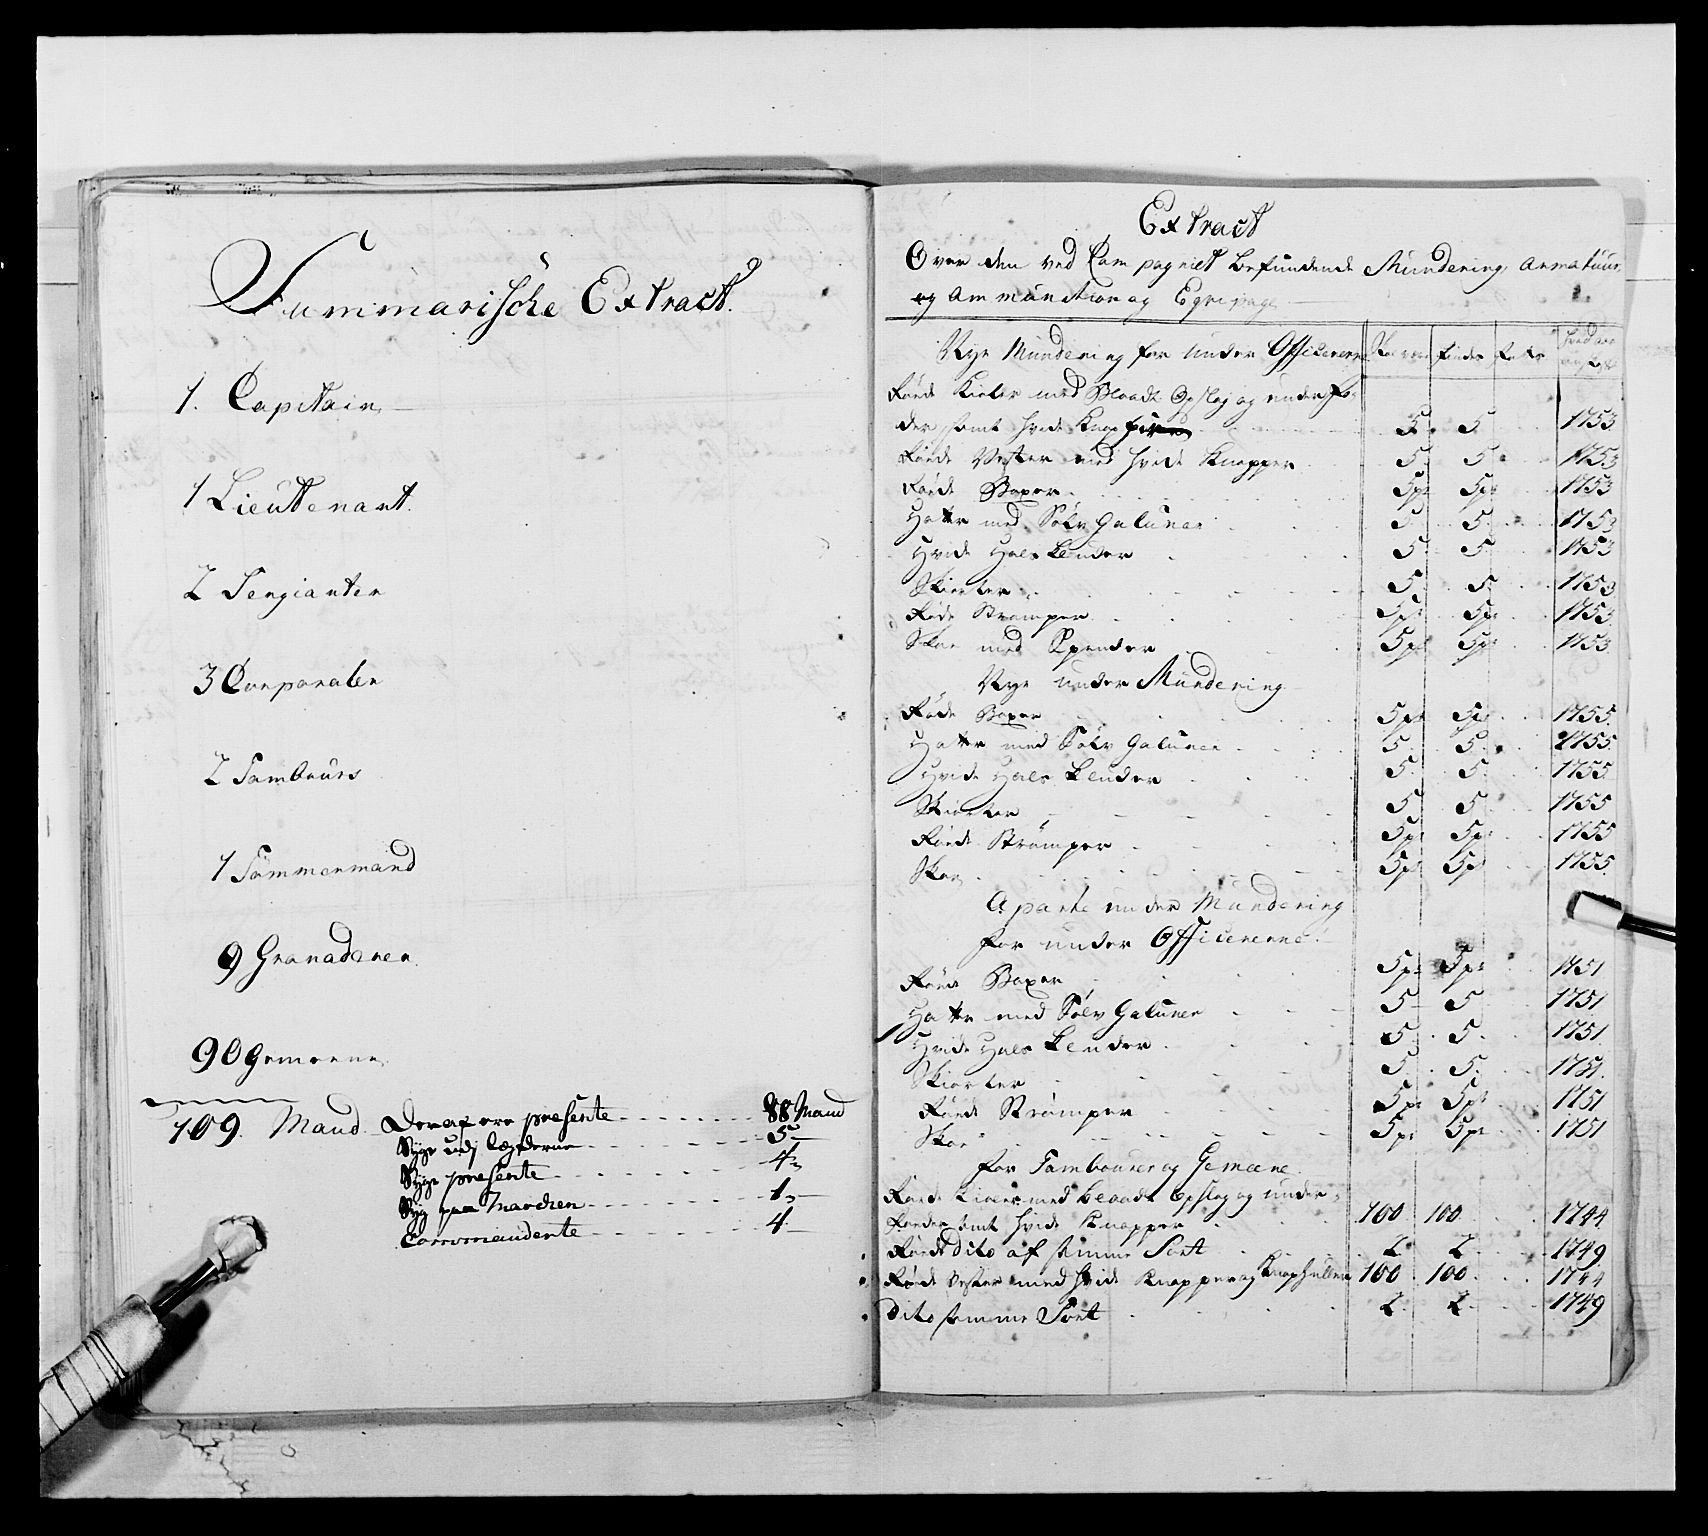 Summarische Extract.
1. Capitain
1 Lieutenant.
2 Sergianter
3 Corporaler
2 Tambours
1 Tømmermand
9 Granaderer
90 Gemeene
109. Mand Deraf ere presente 88 Mand
Syge udj Lægderne 5
Syge presente 4
Syg paa Marchen 1
Commanderte 4
Extract
Over den ved Compagniet befindende Mundering, Armatuur
og Ammunition og Eqvipage
Nye Mundering for under Officererne Skal være findes fattes
Røde Kioler med Blaadt Opslag og under fo-
der samt hvide Knapper 5 5 1753
Røde Vester med hvide Knapper 5 5 1753
Røde Boxer 5pr 5pr 1753
Hatte med Sølv Galuner 5 5 1753
Hvide Hals Klude 5 5 1753
Skiorter 5 5 1753
Røde Strømper 5pr 5pr 1753
Skoe med Spender 5pr 5pr 1753
Nye under Mundering
Røde Boxer 5pr 5pr 1755
Hatte med Sølv Galuner 5 5 1755
Hvide Hals Klude 5 5 1755
Skiorter 5 5 1755
Røde Strømper 5pr 5pr 1755
Skoe 5pr 5pr 1755
Aparte under Mundering
for under Officererne
Røde Boxer 5pr 5pr 1751
Hatte med Sølv Galuner 5 5 1751
Hvide Hals Klude 5 5 1751
Skiorter 5 5 1751
Røde Strømper 5pr 5pr 1751
Skoe 5pr 5pr 1751
for Tambourer og Gemeene
Røde Kioler med blaadt Opslag og under
foeder samt hvide Knapper 100 100 1744
Røde dito af samme Sort 2 2 1749
Røde Vester med hvide Knapper og Knaphuller 100 100 1744
dito samme Sort 2 2 1749